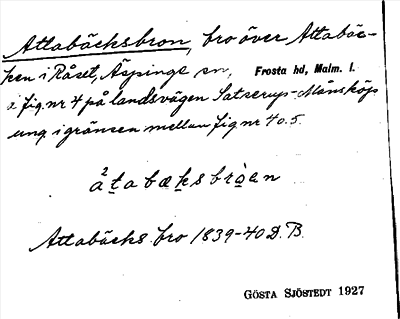 Attabäcksbron, bro över Attabäc-
ken i Råset, Äspinge sn, Frosta hd, Malm. l.
å fig. nr 4 på landsvägen Satserup-Månsköp
ung. i gränsen mellan fig nr 4 o. 5.
a²tabæksbròen
Attabäcks bro 1839-40 D. B.
GÖSTA SJÖSTEDT 1927